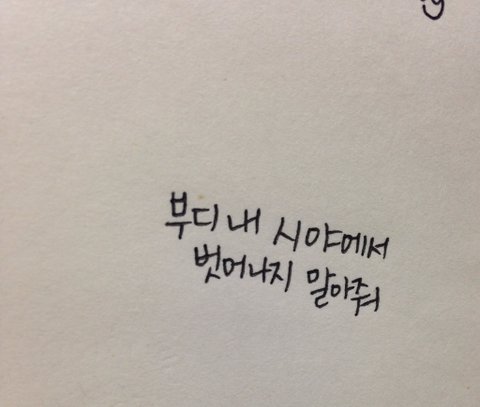 부디 내 시야에서
벗어나지 말아줘